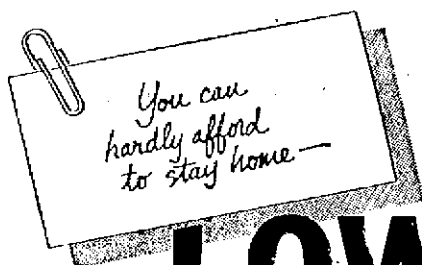 You can
hardly afford
to stay home —
LOW